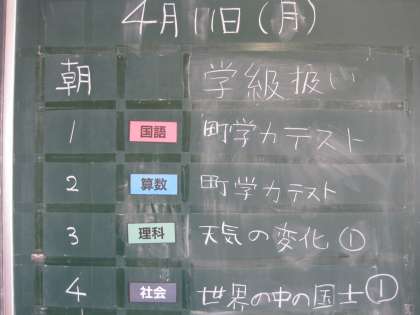 4月11日(月)
朝 学級扱い
1 国語 町学力テスト
2 算数 町学力テスト
3 理科 天気の変化①
4 社会 世界の中の国土①